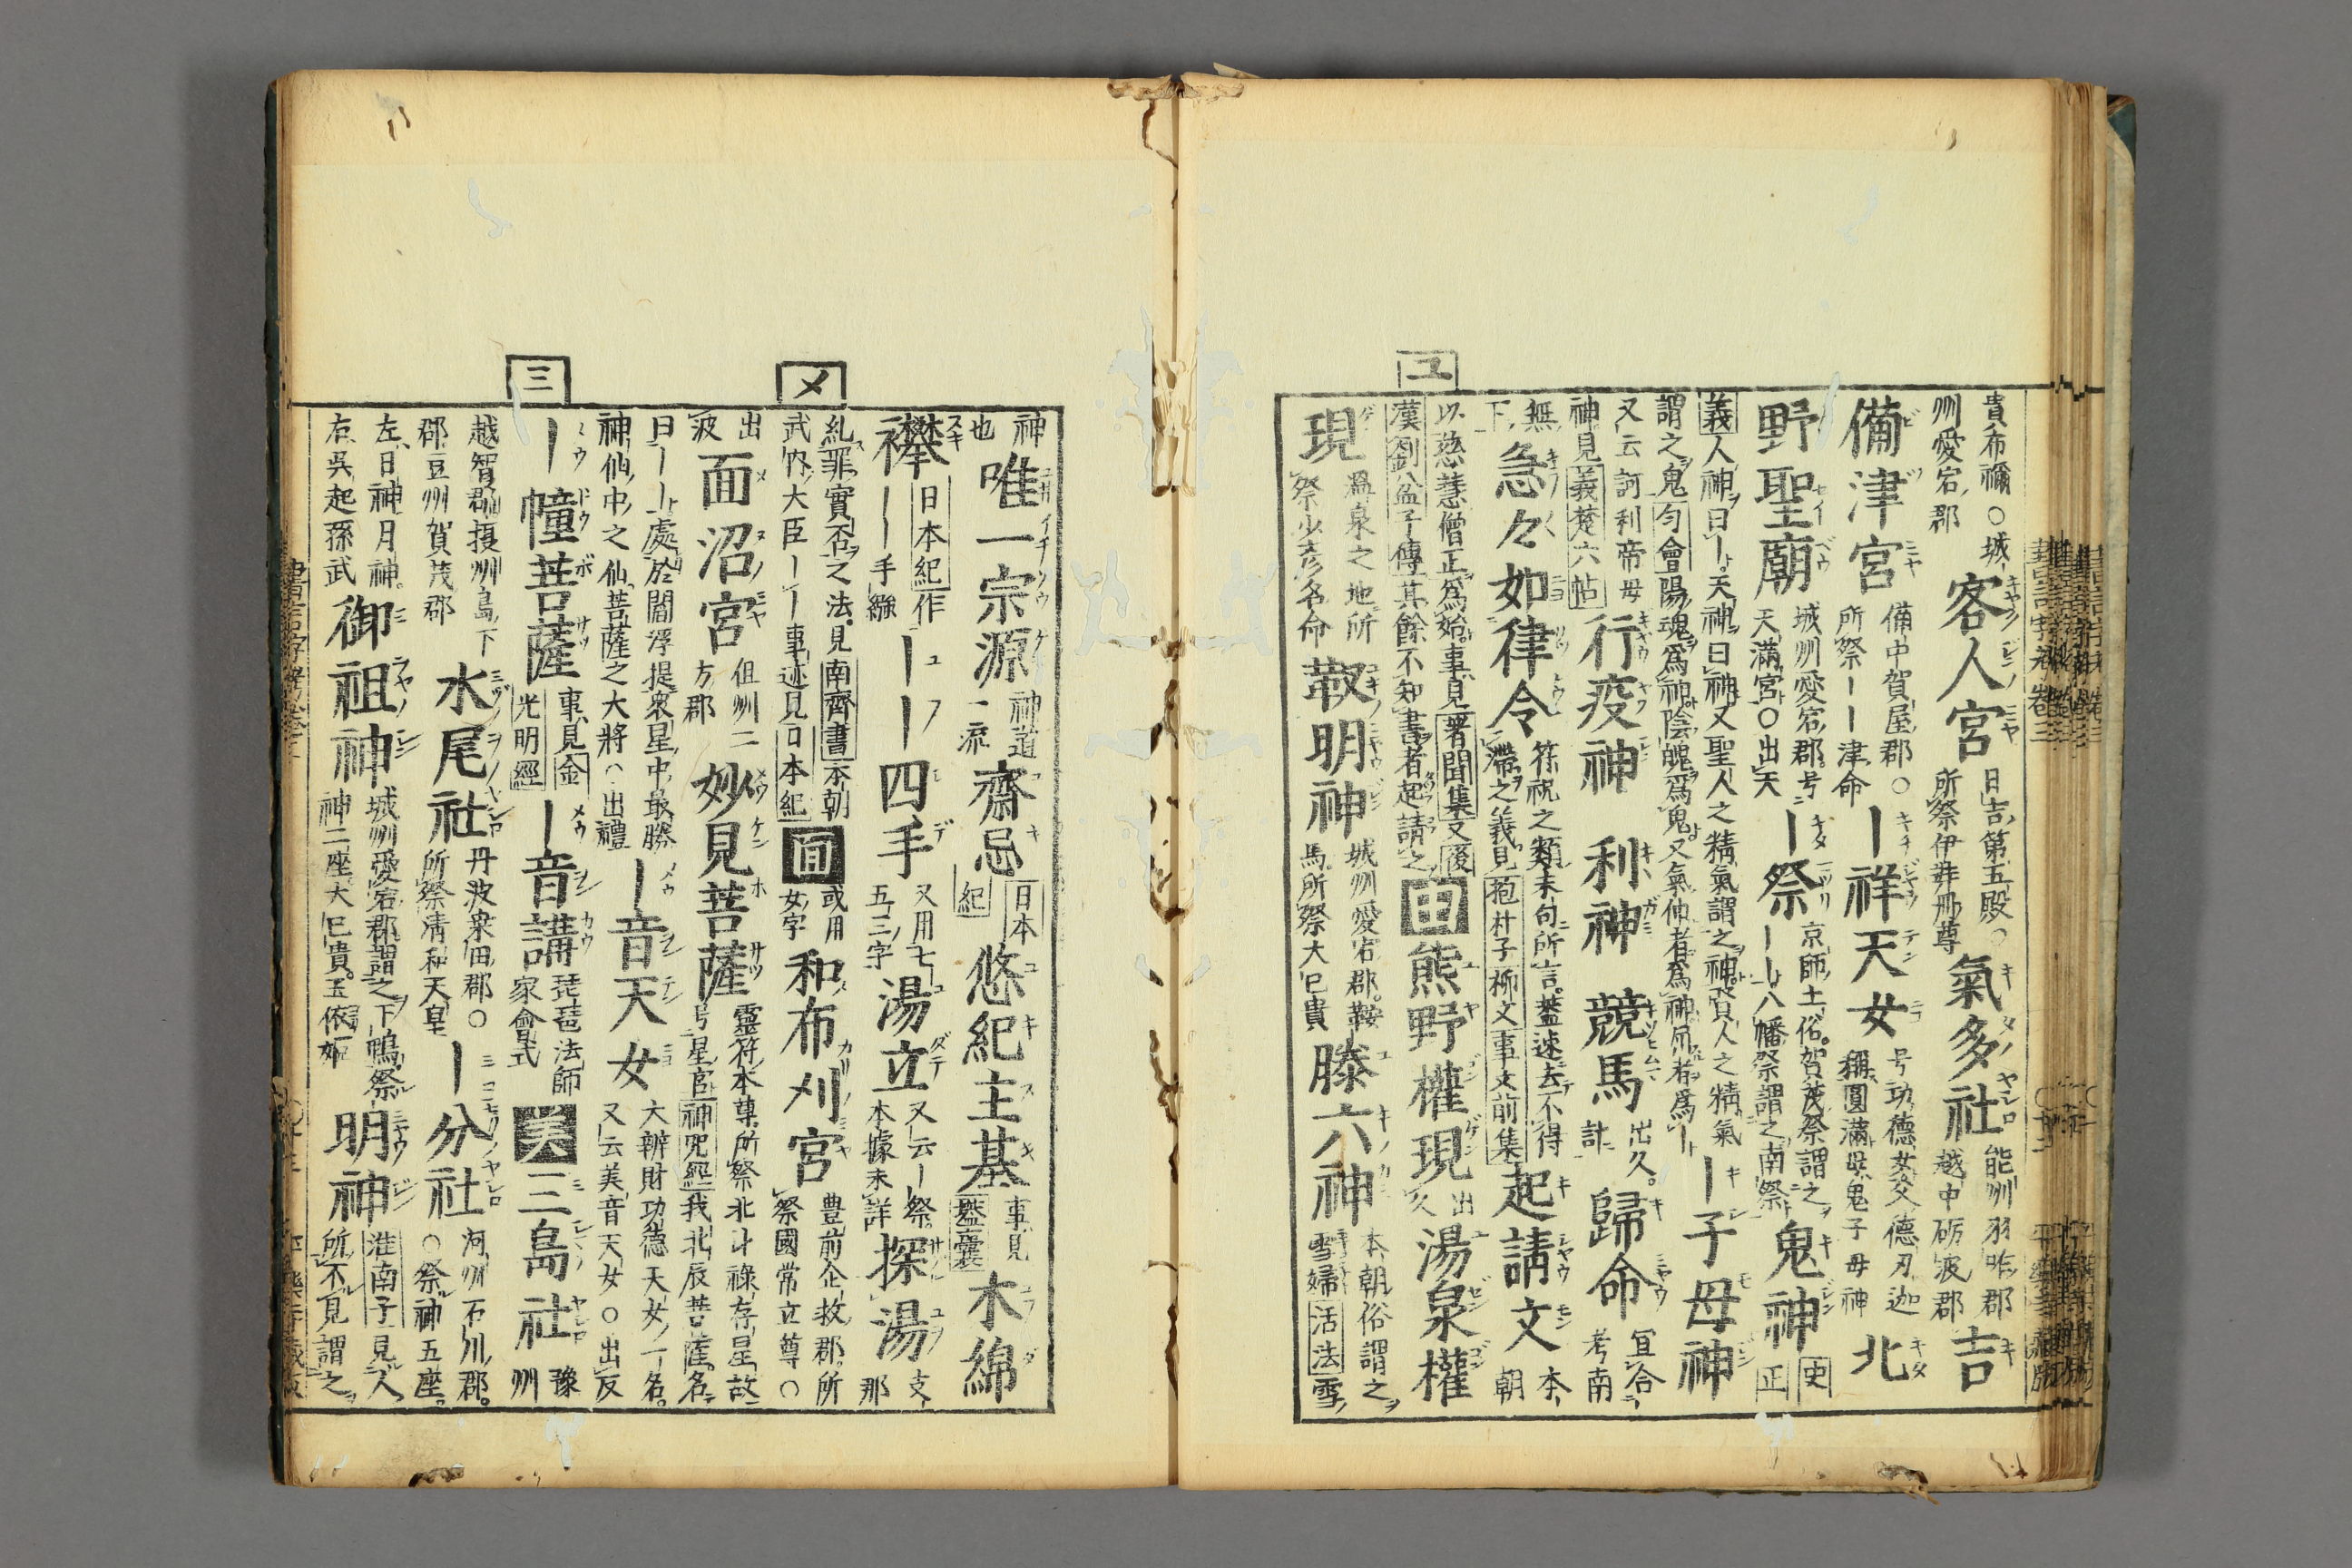 貴布禰○城
州愛宕郡
客人宮
日吉第五殿○
所祭伊弉冊尊
氣多社
能州羽咋郡
越中砺波郡
吉
備津宮
備中賀屋郡○
所祭——津命
—祥天女
号功德女父德刃迦
稱圓滿母鬼子母神
北
野聖廟
城州愛宕郡号
天滿宮○出天
—祭
京師土俗賀茂祭謂之
——八幡祭謂之南祭
鬼神
史
正
義人神曰—天神曰神又聖人之精氣謂之神賢人之精氣
謂之鬼匀會陽魂爲神陰魄爲鬼又氣伸者爲神屈者爲—
—子母神
又云訶利帝母
神見義楚六帖
行疫神
利神
競馬
出久
計
歸命
冝合
考南
無
下
急々如律令
符祝之類末句所言蓋速去不得
滯之義見抱朴子柳文事文前集
起請文
本
朝
以慈慧僧正爲始事見著聞集又後
漢劉盆子傳其餘不知書者起請之
由
熊野權現
出
久
湯泉權
現
溫泉之地所
祭少彥名命
靫明神
城州愛宕郡鞍
馬所祭大己貴
滕六神
本朝俗謂之
雪婦活法雪
ユ
神
也
唯一宗源
神道
一流
齋忌
日本
紀
悠紀主基
事見
壒囊
木綿
襷
日本紀作
—手繦
——— 四手
又用七
五三字
湯立
又云—祭
本據未詳
探湯
支
那
糺罪實否之法見南齊書本朝
武內大臣——事迹見日本紀
面
或用
女字
和布刈宮
豊前企救郡所
祭國常立尊○
出
波
面沼宮
但州二
方郡
妙見菩薩
靈符本尊所祭北斗祿存星故
号星宮神咒經我北辰菩薩名
曰——處於閻浮提衆星中最勝
神仙中之仙菩薩之大將○出禮
—音天女
大辨財功德天女一名
又云美音天女○出反
—幢菩薩
事見金
光明經
—音講
琵琶法師
家會式
美
三島社
豫
州
越智郡攝州島下
郡豆州賀茂郡
水尾社
丹波桒田郡○
所祭淸和天皇
—分社
河州石川郡
○祭神五座
左日神月神
右吳起孫武
御祖神
城州愛宕郡謂之下鴨祭
神二座大己貴玉依姬
明神
淮南子見人
所不見謂之
メ
三